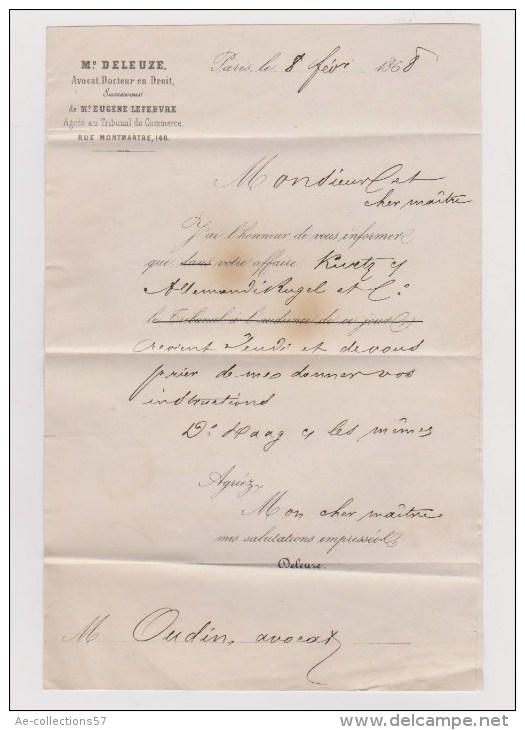 Mᵉ DELEUZE.
Avocat, Docteur en Droit,
Successeur
de Mᵉ EUGÈNE LEFEBVRE
Agréé au Tribunal de Commerce.
RUE MONTMARTRE, 146.
Paris, le 8 févr 1868
Monsieur et
cher maître
J'ai l'honneur de vous informer
que dans votre affaire Kurtz c/
Allemand Kugel et Cⁱᵉ
le Tribunal à l'audience de ce jour
revient Jeudi et de vous
prier de me donner vos
instructions
Dᵒ Haag c/ les mêmes
Agréez,
Mon cher maître
mes salutations empressées
Deleuze.
M Oudin, avocat
Ae-collections57
www.delcampe.net